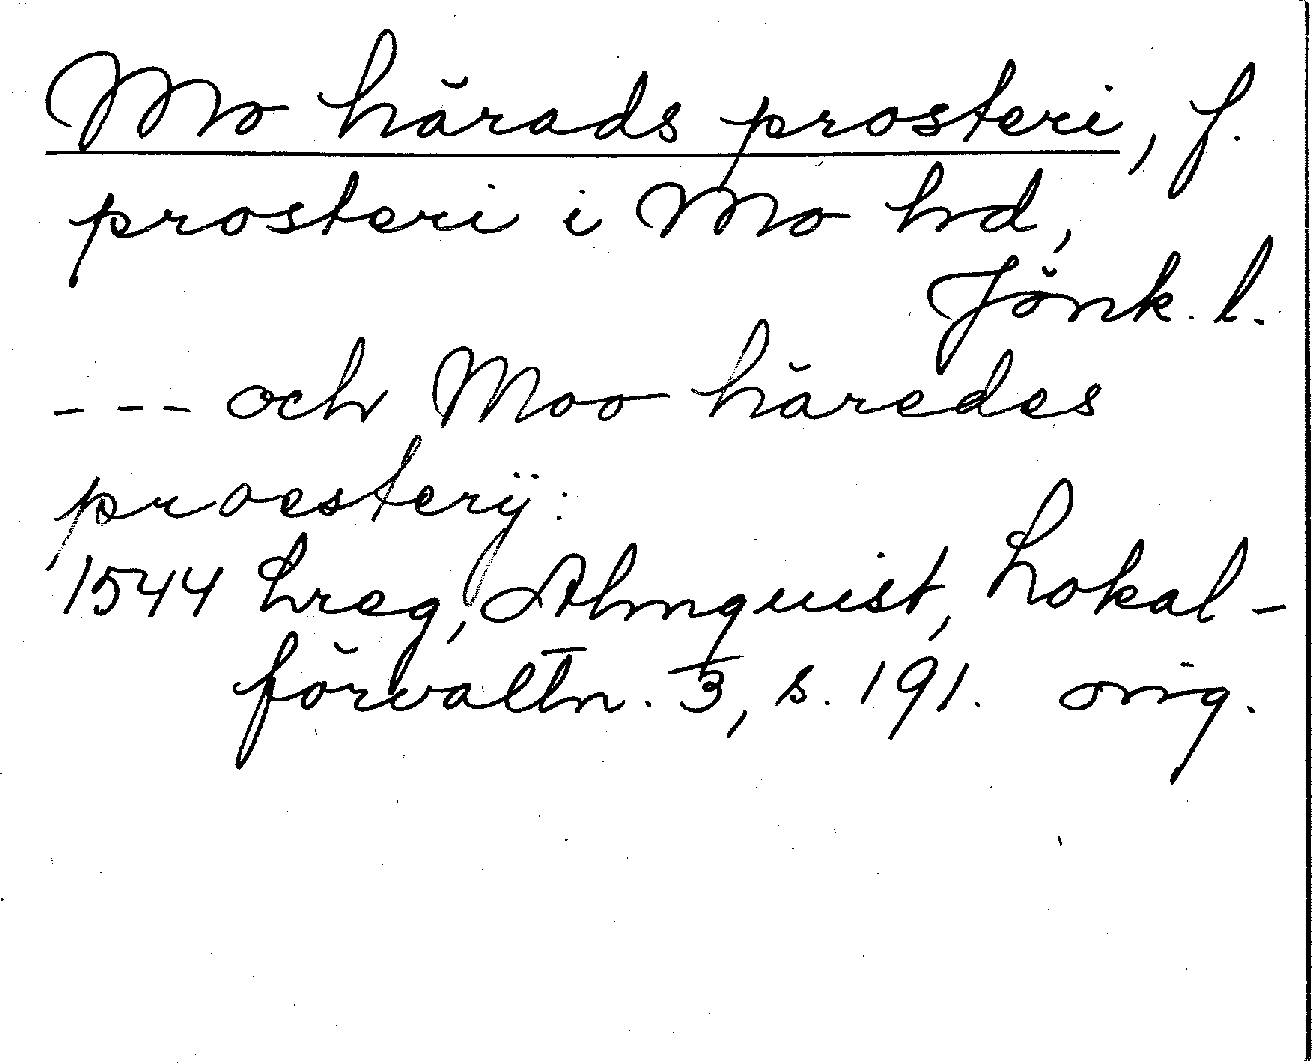 Mo härads prosteri, f.
prosteri i Mo hd,
Jönk. l.
--- och Moo häredes
proesterÿ:
1544 hreg, Almquist, Lokal-
förvaltn. 3, s. 191. orig.